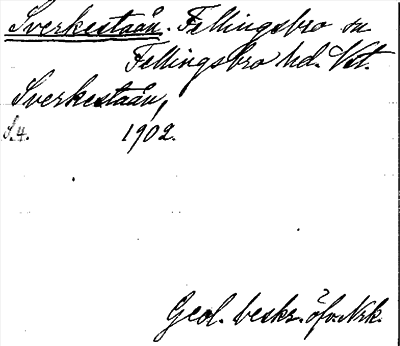 Sverkestaån. Fellingsbro sn
Fellingsbro hd. Vstm.
Sverkestaån,
S. 4. 1902.
Geol. beskr. öfv. Nrk.